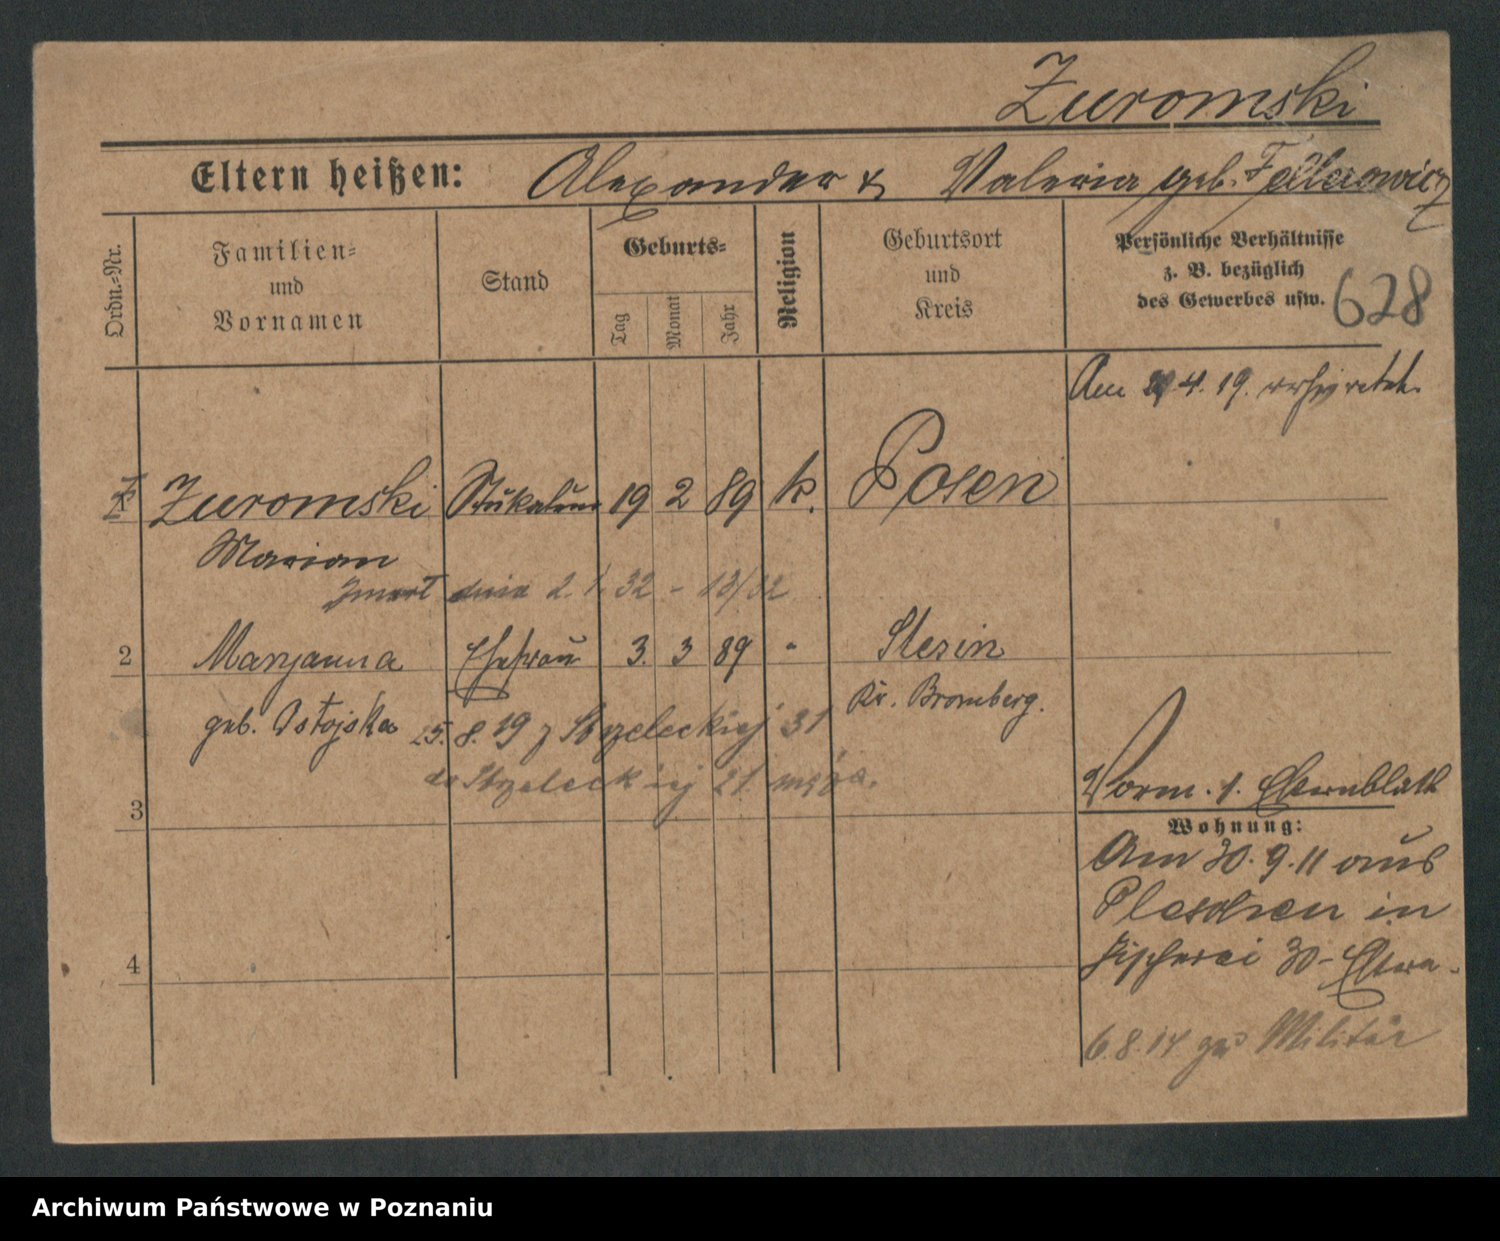 Zuromski
Eltern heißen: Alexander & Valeria geb. Fellerowicz
Ordn.-Nr.
Familien-
und
Vornamen
Stand
Geburts-
Tag
Monat
Jahr
Religion
Geburtsort
und
Kreis
Persönliche Verhältnisse
z. B. bezüglich
des Gewerbes usw.
628
Am 4. 19.
Zuromski Stukateur 19 2 89 k. Posen
Marian
Zmarł dnia 2. 1. 32 - 13/32
2 Maryanna Ehefrau 3. 3 89 "
geb. Ostojska
Kr. Bromberg.
25. 8. 19 z Strzeleckiej 31
do Strzeleckiej 21
3
Vorm. s. Elternblatt
Wohnung:
Am 30. 9. 11 aus
Pleschen in
Fischerei 30 - Eltern.
4
6. 8. 14 zu Militär
Archiwum Państwowe w Poznaniu